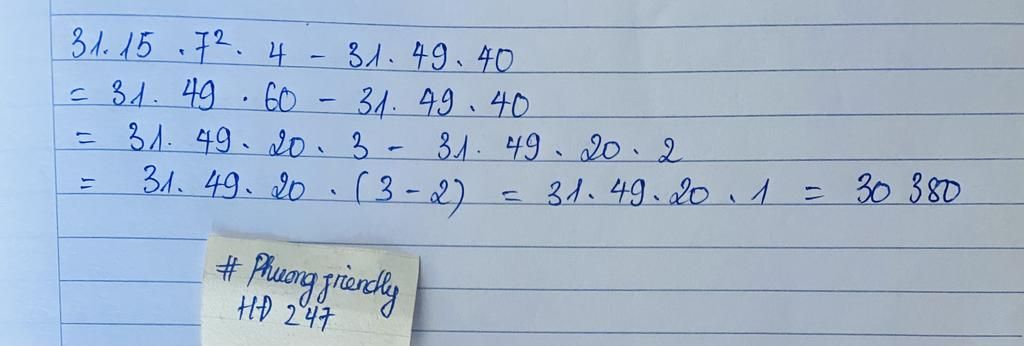 31.15 . 7². 4 - 31. 49. 40
= 31. 49 . 60 - 31. 49 . 40
= 31. 49. 20 . 3 - 31. 49. 20. 2
= 31. 49. 20 . (3 - 2) = 31. 49. 20 . 1 = 30 380
# Phuongfriendly
HĐ 247